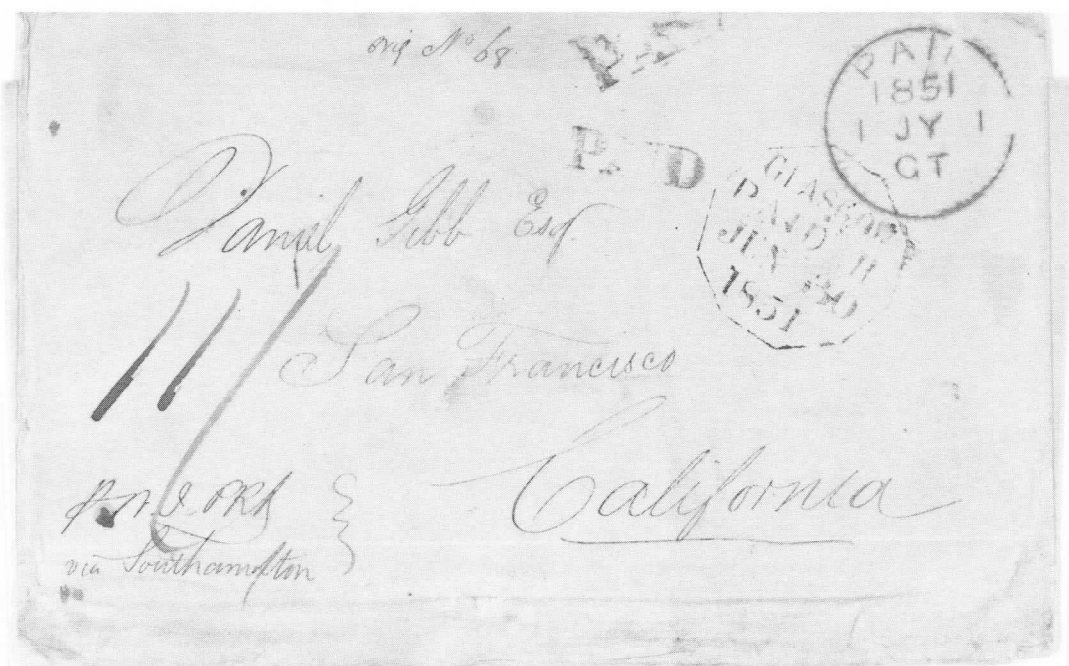 orig No 68
PAID
1851
1 JY 1
CT
PAID
GLASGOW
PAID
JUN 30
1851
Daniel Gibb Esq.
11/
San Francisco
California
via Southampton